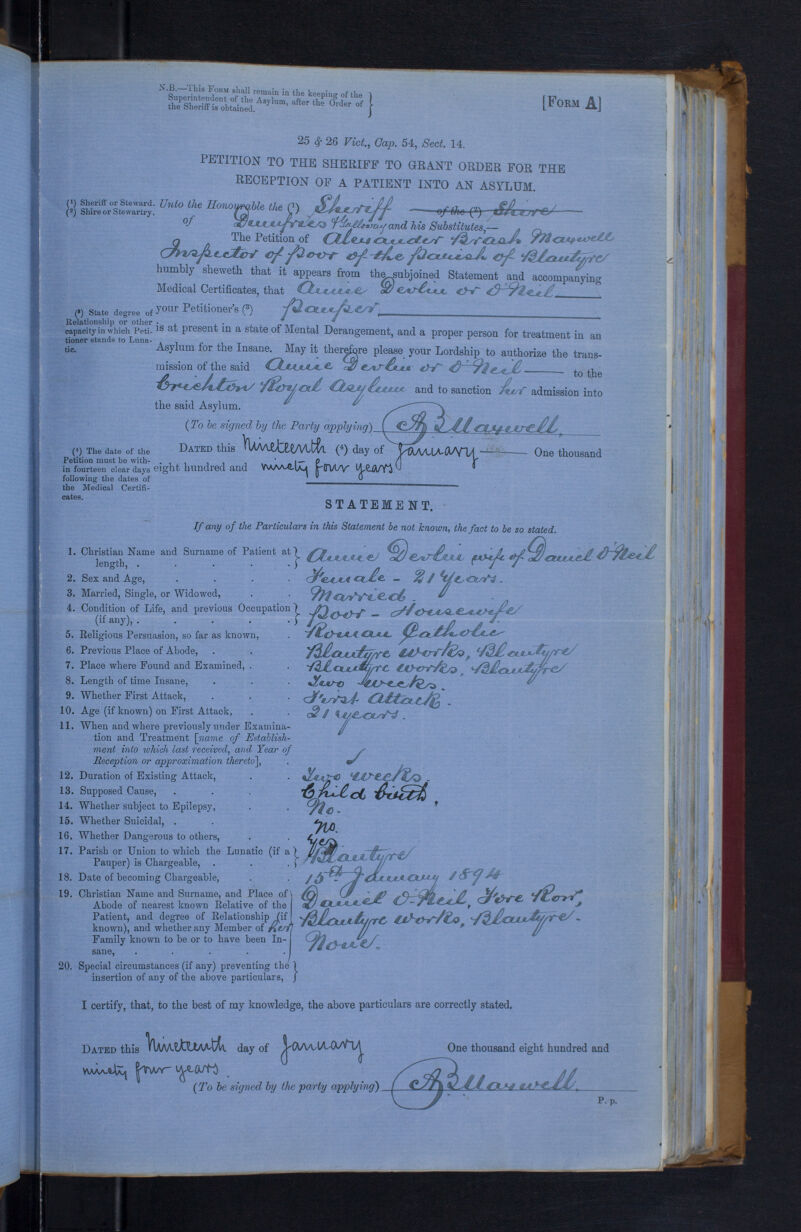 N.B.—This Form shall remain in the keeping of the
Superintendent of the Asylum, after the Order of
the Sheriff is obtained.
[Form A]
25 & 26 Vict., Cap. 54, Sect. 14.
PETITION TO THE SHERIFF TO GRANT ORDER FOR THE
RECEPTION OF A PATIENT INTO AN ASYLUM.
(¹) Sheriff or Steward.
(²) Shire or Stewartry.
Unto the Honourable the (¹) Sheriff of the (²) Shire
of Dumfries & Galloway and his Substitutes,—
The Petition of Alexander Brash Maxwell
Inspector of poor of the parish of Blantyre
humbly sheweth that it appears from the subjoined Statement and accompanying
Medical Certificates, that Annie Devlin or O'Neil
(³) State degree of
Relationship or other
capacity in which Peti-
tioner stands to Luna-
tic.
your Petitioner's (³) pauper
is at present in a state of Mental Derangement, and a proper person for treatment in an
Asylum for the Insane. May it therefore please your Lordship to authorize the trans-
mission of the said Annie Devlin or O'Neil to the
Crichton Royal Asylum and to sanction her admission into
the said Asylum.
(To be signed by the Party applying) AB Maxwell.
(⁴) The date of the
Petition must be with-
in fourteen clear days
following the dates of
the Medical Certifi-
cates.
Dated this Nineteenth (⁴) day of January One thousand
eight hundred and ninety four years
STATEMENT.
If any of the Particulars in this Statement be not known, the fact to be so stated.
1. Christian Name and Surname of Patient at length, . Annie Devlin wife of Daniel O'Neil
2. Sex and Age, Female - 21 years.
3. Married, Single, or Widowed, Married.
4. Condition of Life, and previous Occupation (if any), . Poor - Housewife
5. Religious Persuasion, so far as known, Roman Catholic
6. Previous Place of Abode, . Blantyre works, Blantyre
7. Place where Found and Examined, . Blantyre works, Blantyre
8. Length of time Insane, Two weeks.
9. Whether First Attack, First attack.
10. Age (if known) on First Attack, 21 years.
11. When and where previously under Examina-
tion and Treatment [name of Establish-
ment into which last received, and Year of
Reception or approximation thereto], ✓
12. Duration of Existing Attack, Two weeks.
13. Supposed Cause, Child birth
14. Whether subject to Epilepsy, No.
15. Whether Suicidal, . No.
16. Whether Dangerous to others, Yes
17. Parish or Union to which the Lunatic (if a Pauper) is Chargeable, . Blantyre
18. Date of becoming Chargeable, 15th January 1894
19. Christian Name and Surname, and Place of
Abode of nearest known Relative of the
Patient, and degree of Relationship (if
known), and whether any Member of her
Family known to be or to have been In-
sane,
Daniel O'Neil, Fore Row,
Blantyre works, Blantyre.
None.
20. Special circumstances (if any) preventing the
insertion of any of the above particulars,
I certify, that, to the best of my knowledge, the above particulars are correctly stated.
Dated this Nineteenth day of January One thousand eight hundred and
ninety four years.
(To be signed by the party applying) AB Maxwell.
P. p.